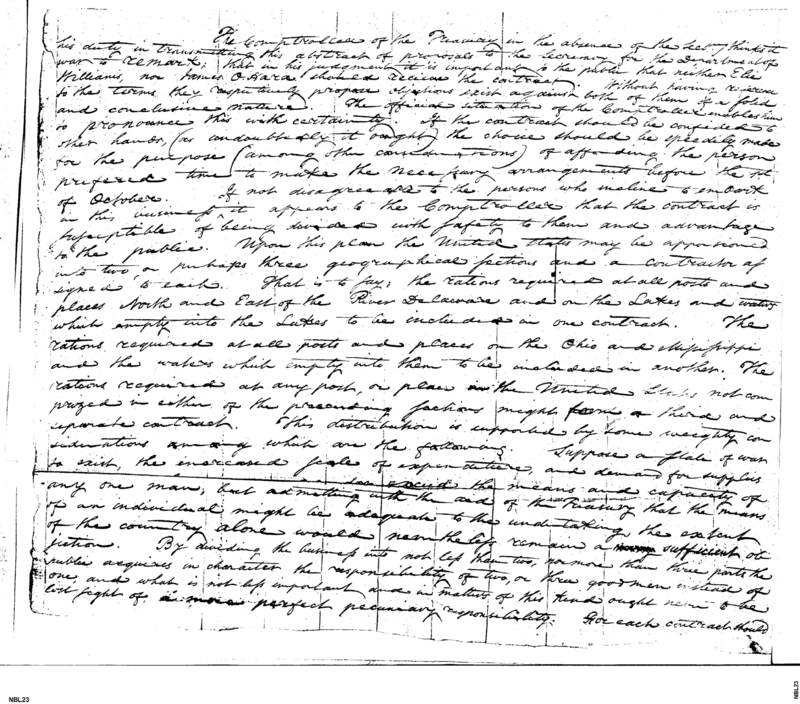 The Comptroller of the Treasury in the absence of the Secy thinks it
his duty in transmitting this abstract of proposals to the Secretary for the Department of
War to remark; that in his judgment it is important to the public that neither Elie
Williams, nor James O.Hara should receive the contract. Without having reference
to the terms they respectively propose objections exist against both of them of a solid
and conclusive nature. The official situation of the Comptroller enables him
to pronounce this with certainty. If the contract should be confided to
other hands, (as undoubtedly it ought) the choice should be speedily made
for the purpose (among other considerations) of affording the person
prefered time to make the necessary arrangements before the 1st
of October. If not disagreeable to the persons who incline to embark
in this business, it appears to the Comptroller that the contract is
susceptible of being divided with safety to them and advantage
to the public. Upon this plan the United States may be apportioned
into two, or perhaps three geographical sections and a contractor as
signed to each. That is to say; the rations required at all posts and
places North and East of the River Delaware and on the Lakes and waters
which empty into the Lakes to be included in one contract. The
rations required at all posts and places on the Ohio and Mississippi
and the waters which empty into them to be included in another. The
rations required at any post, or place in the United States not com
prized in either of the preceeding sections might form a third and
separate contract. This distribution is supported by some weighty con
siderations among which are the following. Suppose a state of war
to exist, the increased scale of expenditure, and demand for supplies
exceed the means and capacity of
any one man; but admitting with the aid of the Treasury that the means
of an individual might be adequate to the undertaking, the extent
of the country alone would nevertheless remain a sufficient ob
jection. By dividing the business into not less than two, nor more than three parts the
public acquires in character the responsibility of two, or three good men instead of
one, and what is not less important and in matters of this kind ought never to be
lost sight of a more perfect pecuniary responsibility. For each contract should
NBL23
NBL23